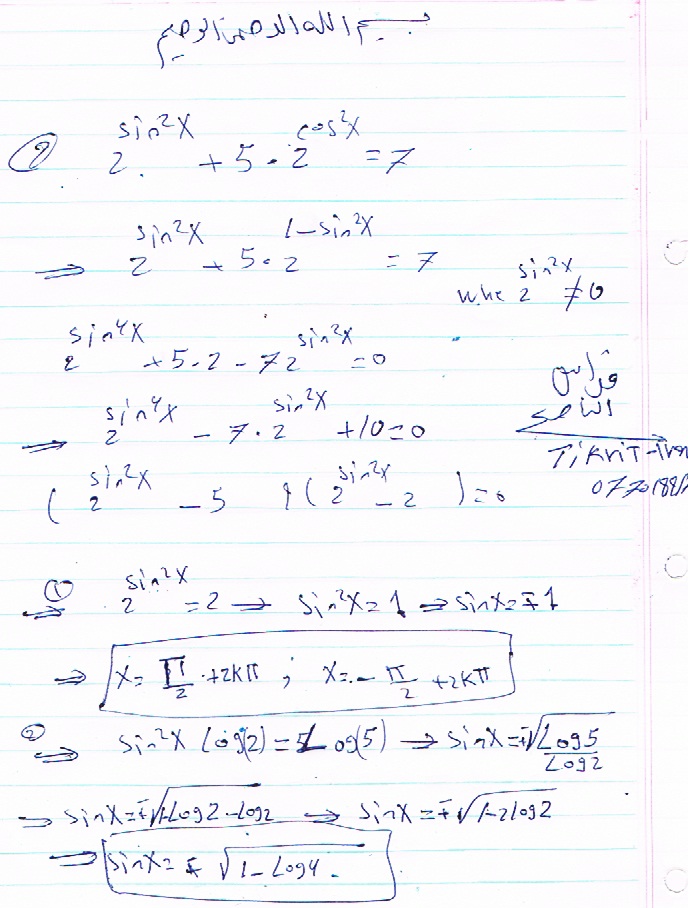 بسم الله الرحمن الرحيم
2^{sin²x} + 5·2^{cos²x} = 7
⇒ 2^{sin²x} + 5·2^{1-sin²x} = 7
whe 2^{sin²x} ≠ 0
2^{sin⁴x} + 5·2 - 7 2^{sin²x} = 0
فراس
⇒ 2^{sin⁴x} - 7·2^{sin²x} + 10 = 0
TiKriT-Ira
(2^{sin²x} - 5)(2^{sin²x} - 2) = 0
① ⇒ 2^{sin²x} = 2 → sin²x = 1 ⇒ sinx = ∓1
⇒ x = π/2 + 2Kπ ; x = -π/2 + 2Kπ
② ⇒ sin²x Log(2) = Log(5) → sinx = ∓√(Log5/Log2)
→ sinx = ∓√(1-Log2-Log2) → sinx = ∓√(1-2log2)
⇒ sinx = ∓√(1-Log4)